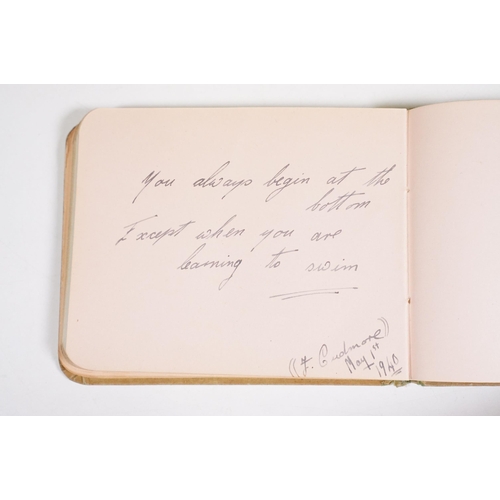 You always begin at the
bottom
Except when you are
learning to swim
((F. Cudmore))
May 1st
1940